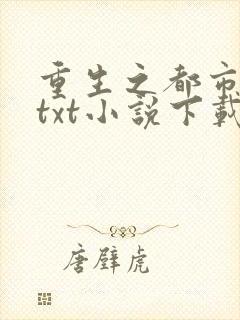 重生之都市
txt小说下载
唐璧虎